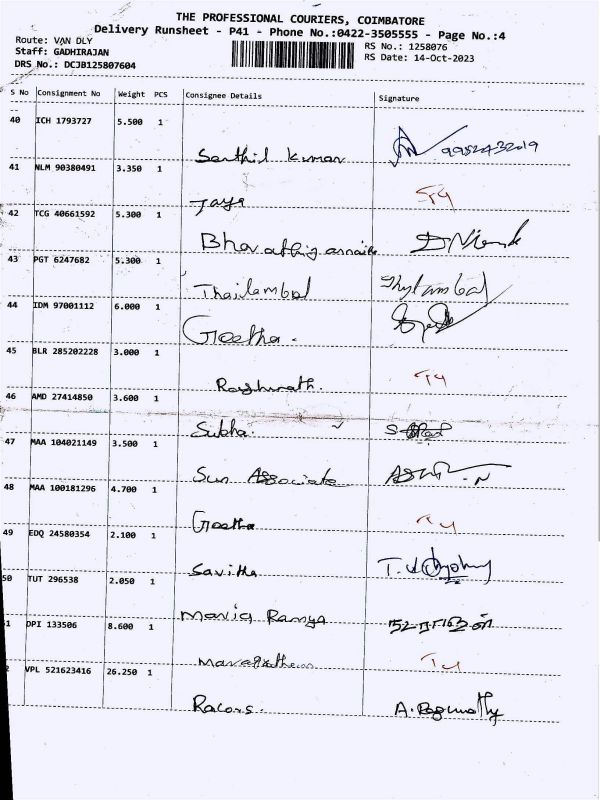 THE PROFESSIONAL COURIERS, COIMBATORE
Delivery Runsheet - P41 - Phone No.:0422-3505555 - Page No.:4
Route: VAN DLY
Staff: GADHIRAJAN
DRS No.: DCJB125807604
RS No.: 1258076
RS Date: 14-Oct-2023
S No Consignment No Weight PCS Consignee Details Signature
40 ICH 1793727 5.500 1
Senthil Kumar 9952432019
41 NLM 90380491 3.350 1
Jaya
42 TCG 40661592 5.300 1
43 PGT 6247682 5.300 1
44 IDM 97001112 6.000 1
Geetha.
45 BLR 285202228 3.000 1
46 AMD 27414850 3.600 1
Subha.
47 MAA 104021149 3.500 1
Sun Associate
48 MAA 100181296 4.700 1
Geetha
49 EDQ 24580354 2.100 1
Savitha
50 TUT 296538 2.050 1
Maria Ramya
1 OPI 133506 8.600 1
VPL 521623416 26.250 1
Racons.